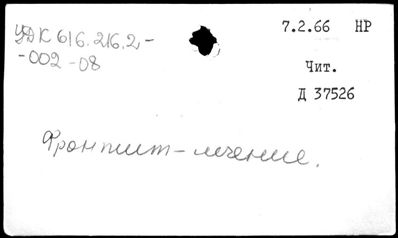 УДК 616.216.2-
-002-08
7.2.66 НР
Чит.
Д 37526
Фронтит-лечение.